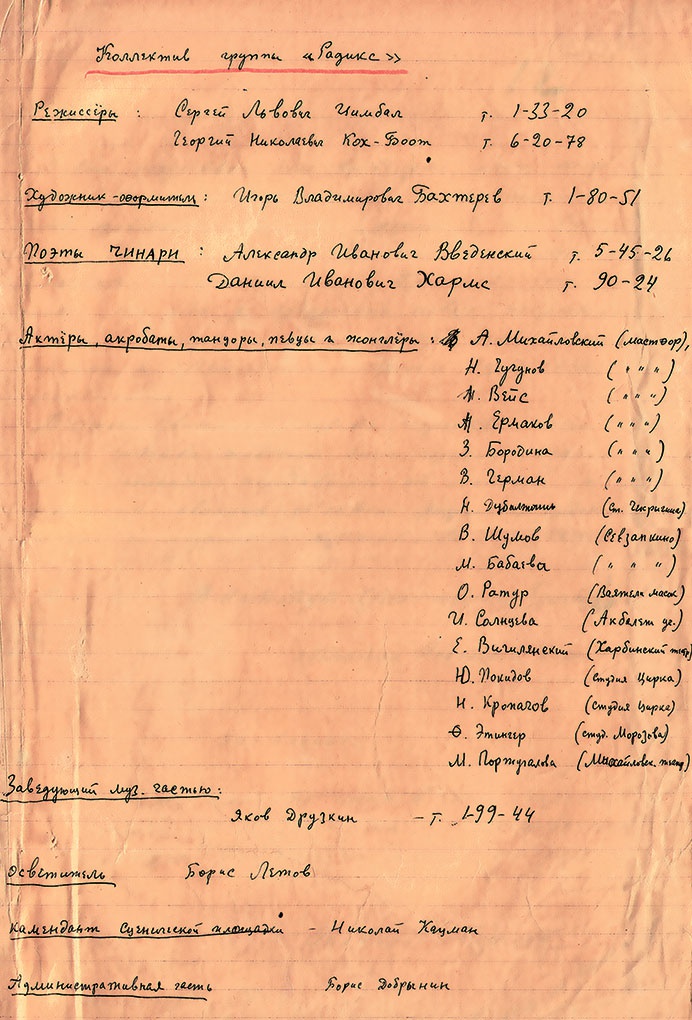 Коллектив группы «Радикс»
Режиссёры : Сергей Львович Цимбал т. 1-33-20
Георгий Николаевич Кох-Боот т. 6-20-78
Художник-оформитель: Игорь Владимирович Бахтерев т. 1-80-51
Поэты чинари : Александр Иванович Введенский т. 5-45-26
Даниил Иванович Хармс т. 90-24
Актёры, акробаты, танцоры, певцы и жонглёры : А. Михайловский (мастфор),
Н. Чугунов ( " " " )
Вейс ( " " " )
Ермаков ( " " " )
З. Бородина ( " " " )
В. Герман ( " " " )
(ст.
В. Шумов (Севзапкино)
М. Бабаева ( " " " )
О. Ратур (Ваятели масок)
И. Солнцева (Акбалет
Е. Вигилянский (Харбинский театр
Ю. Покидов (студия цирка)
Н. Кропачов (студия цирка)
Этингер (студ. Морозова)
М. Поржугалова (Михайловск. театр)
Заведующий муз. частью:
Яков Друзкин – т. 1-99-44
Осветитель Борис Летов
Камендант сценической площадки – Николай Кацман
Административная часть Борис Добрынин